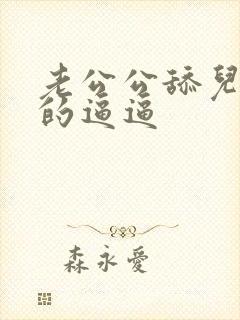 老公公舔兒
的逼逼
森永愛